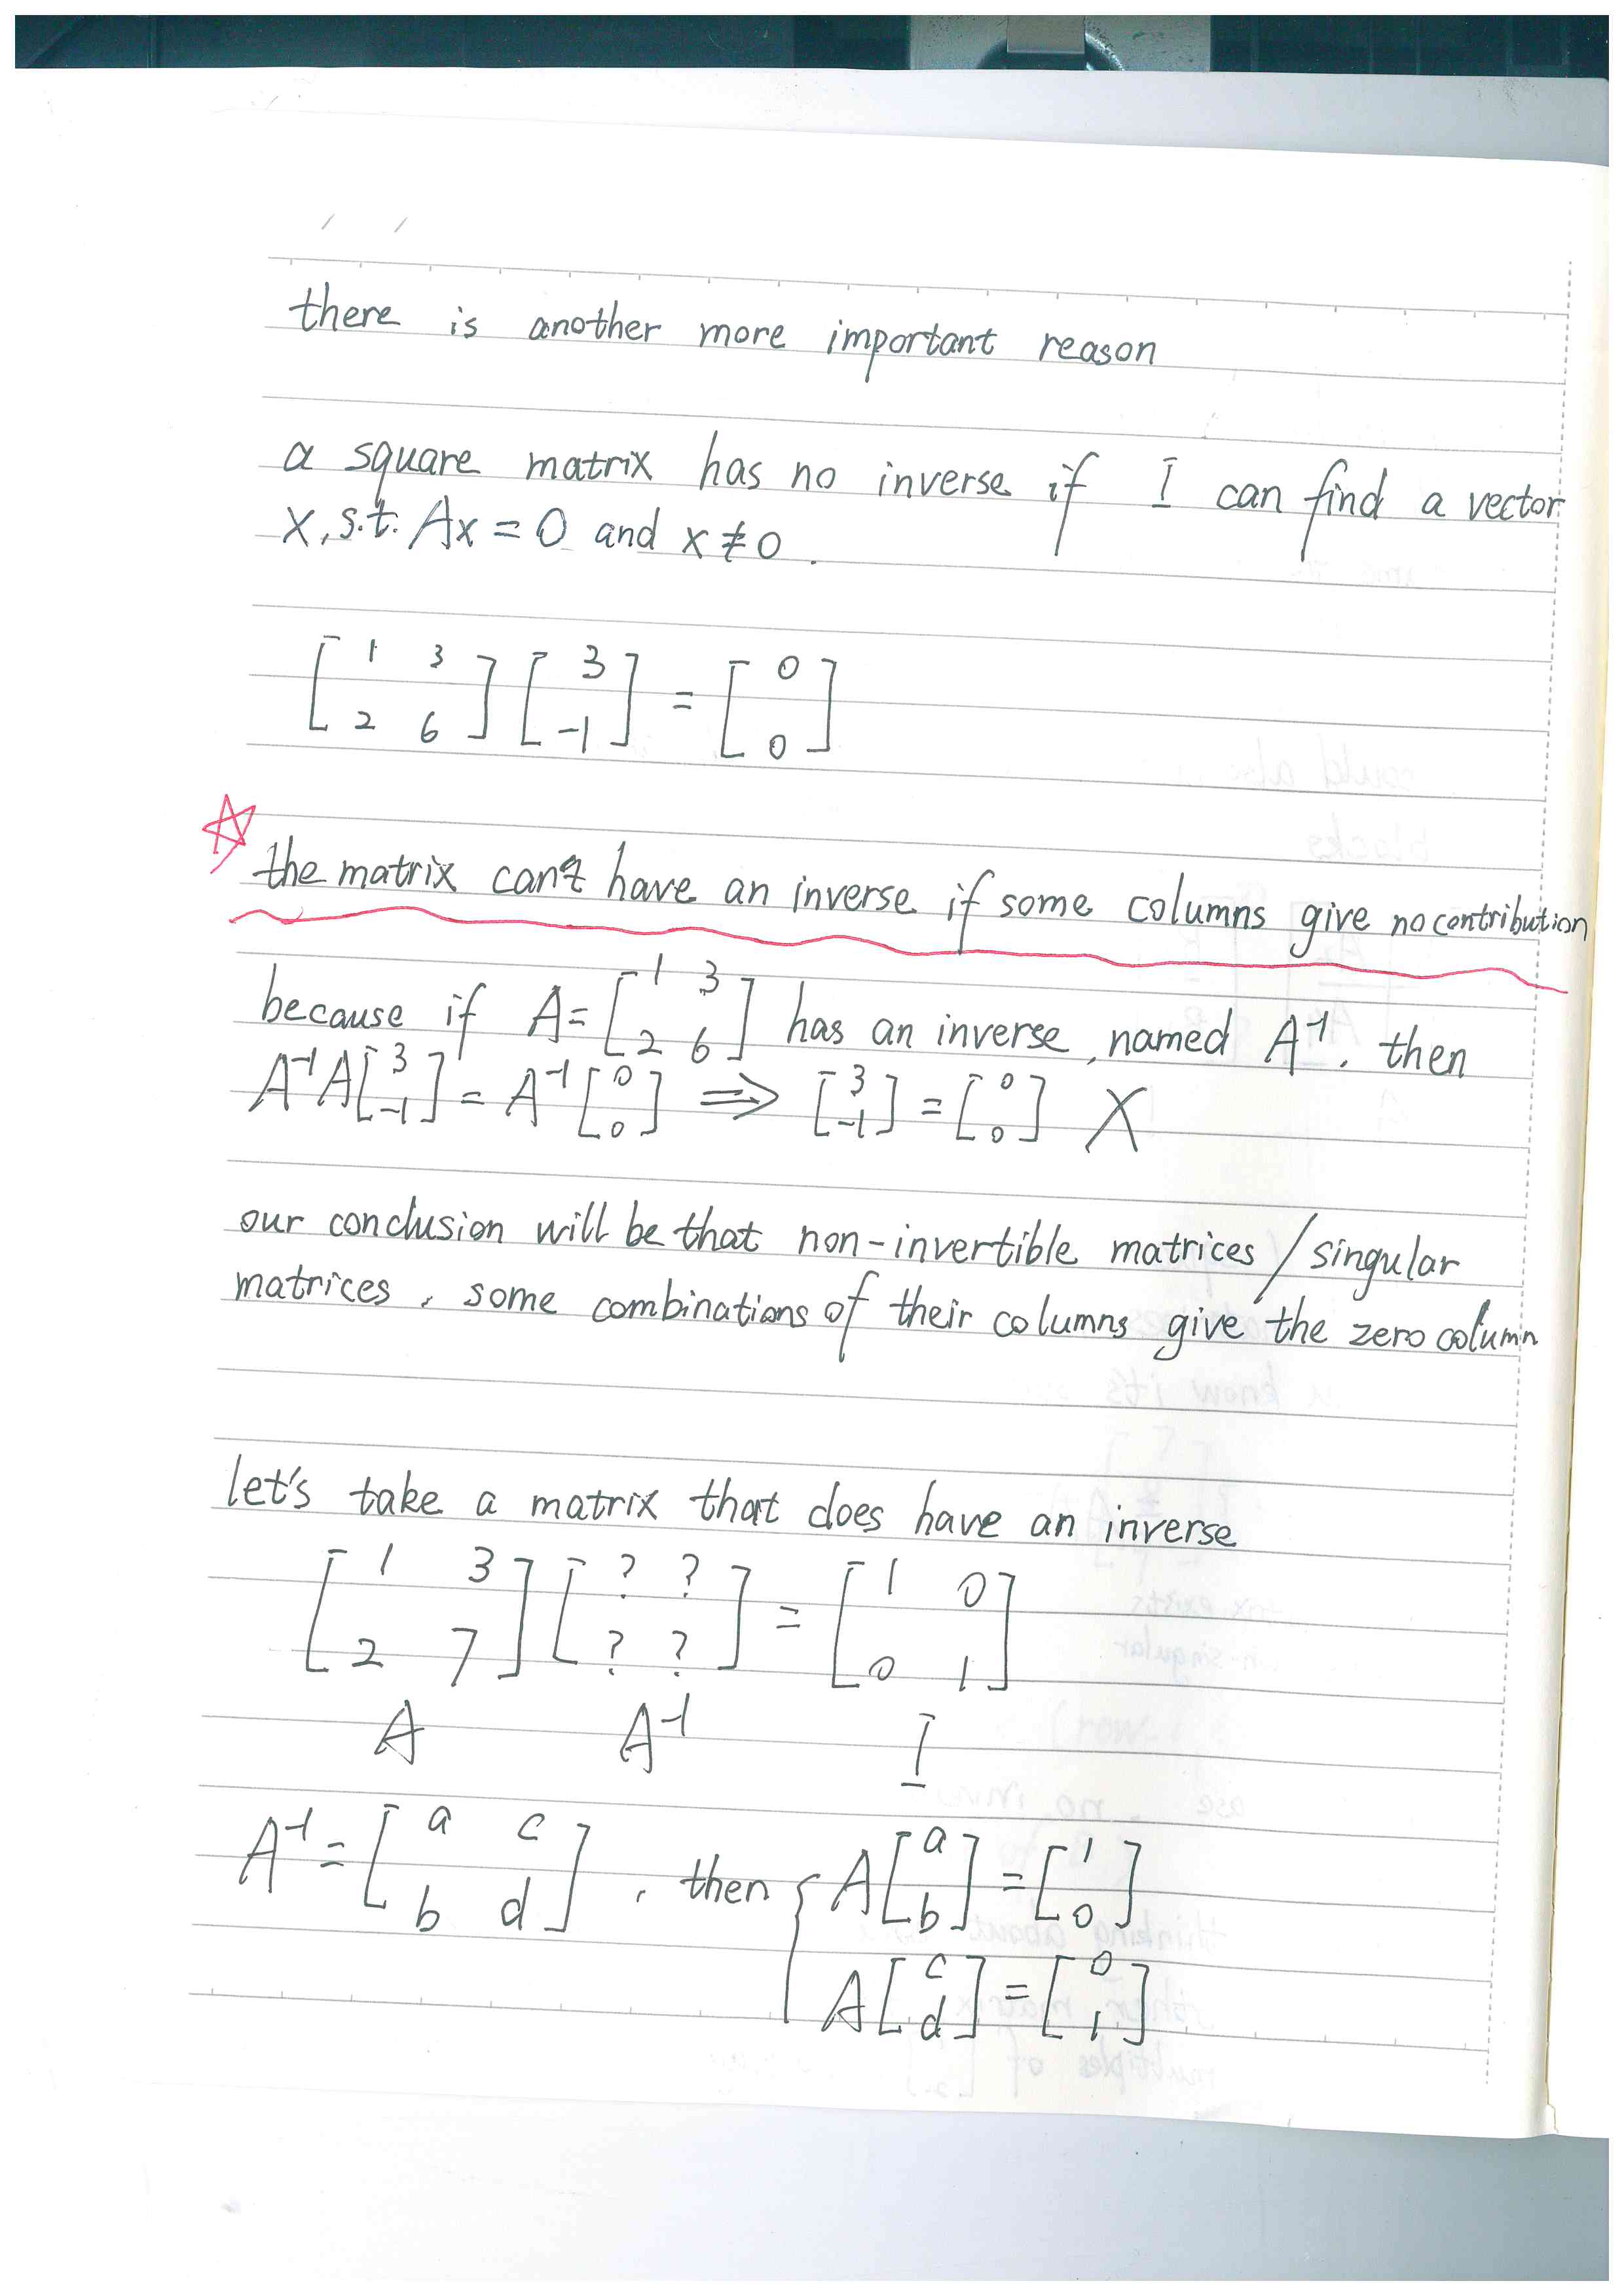 there is another more important reason
a square matrix has no inverse if I can find a vector
x, s.t. Ax = 0 and x ≠ 0.
[1 3; 2 6] [3; -1] = [0; 0]
☆ the matrix can't have an inverse if some columns give no contribution
because if A = [1 3; 2 6] has an inverse, named A⁻¹, then
A⁻¹A[3; -1] = A⁻¹[0; 0] ⟹ [3; -1] = [0; 0] X
our conclusion will be that non-invertible matrices / singular
matrices, some combinations of their columns give the zero column
let's take a matrix that does have an inverse
[1 3; 2 7] [? ?; ? ?] = [1 0; 0 1]
A A⁻¹ I
A⁻¹ = [a c; b d], then { A[a; b] = [1; 0]
A[c; d] = [0; 1]